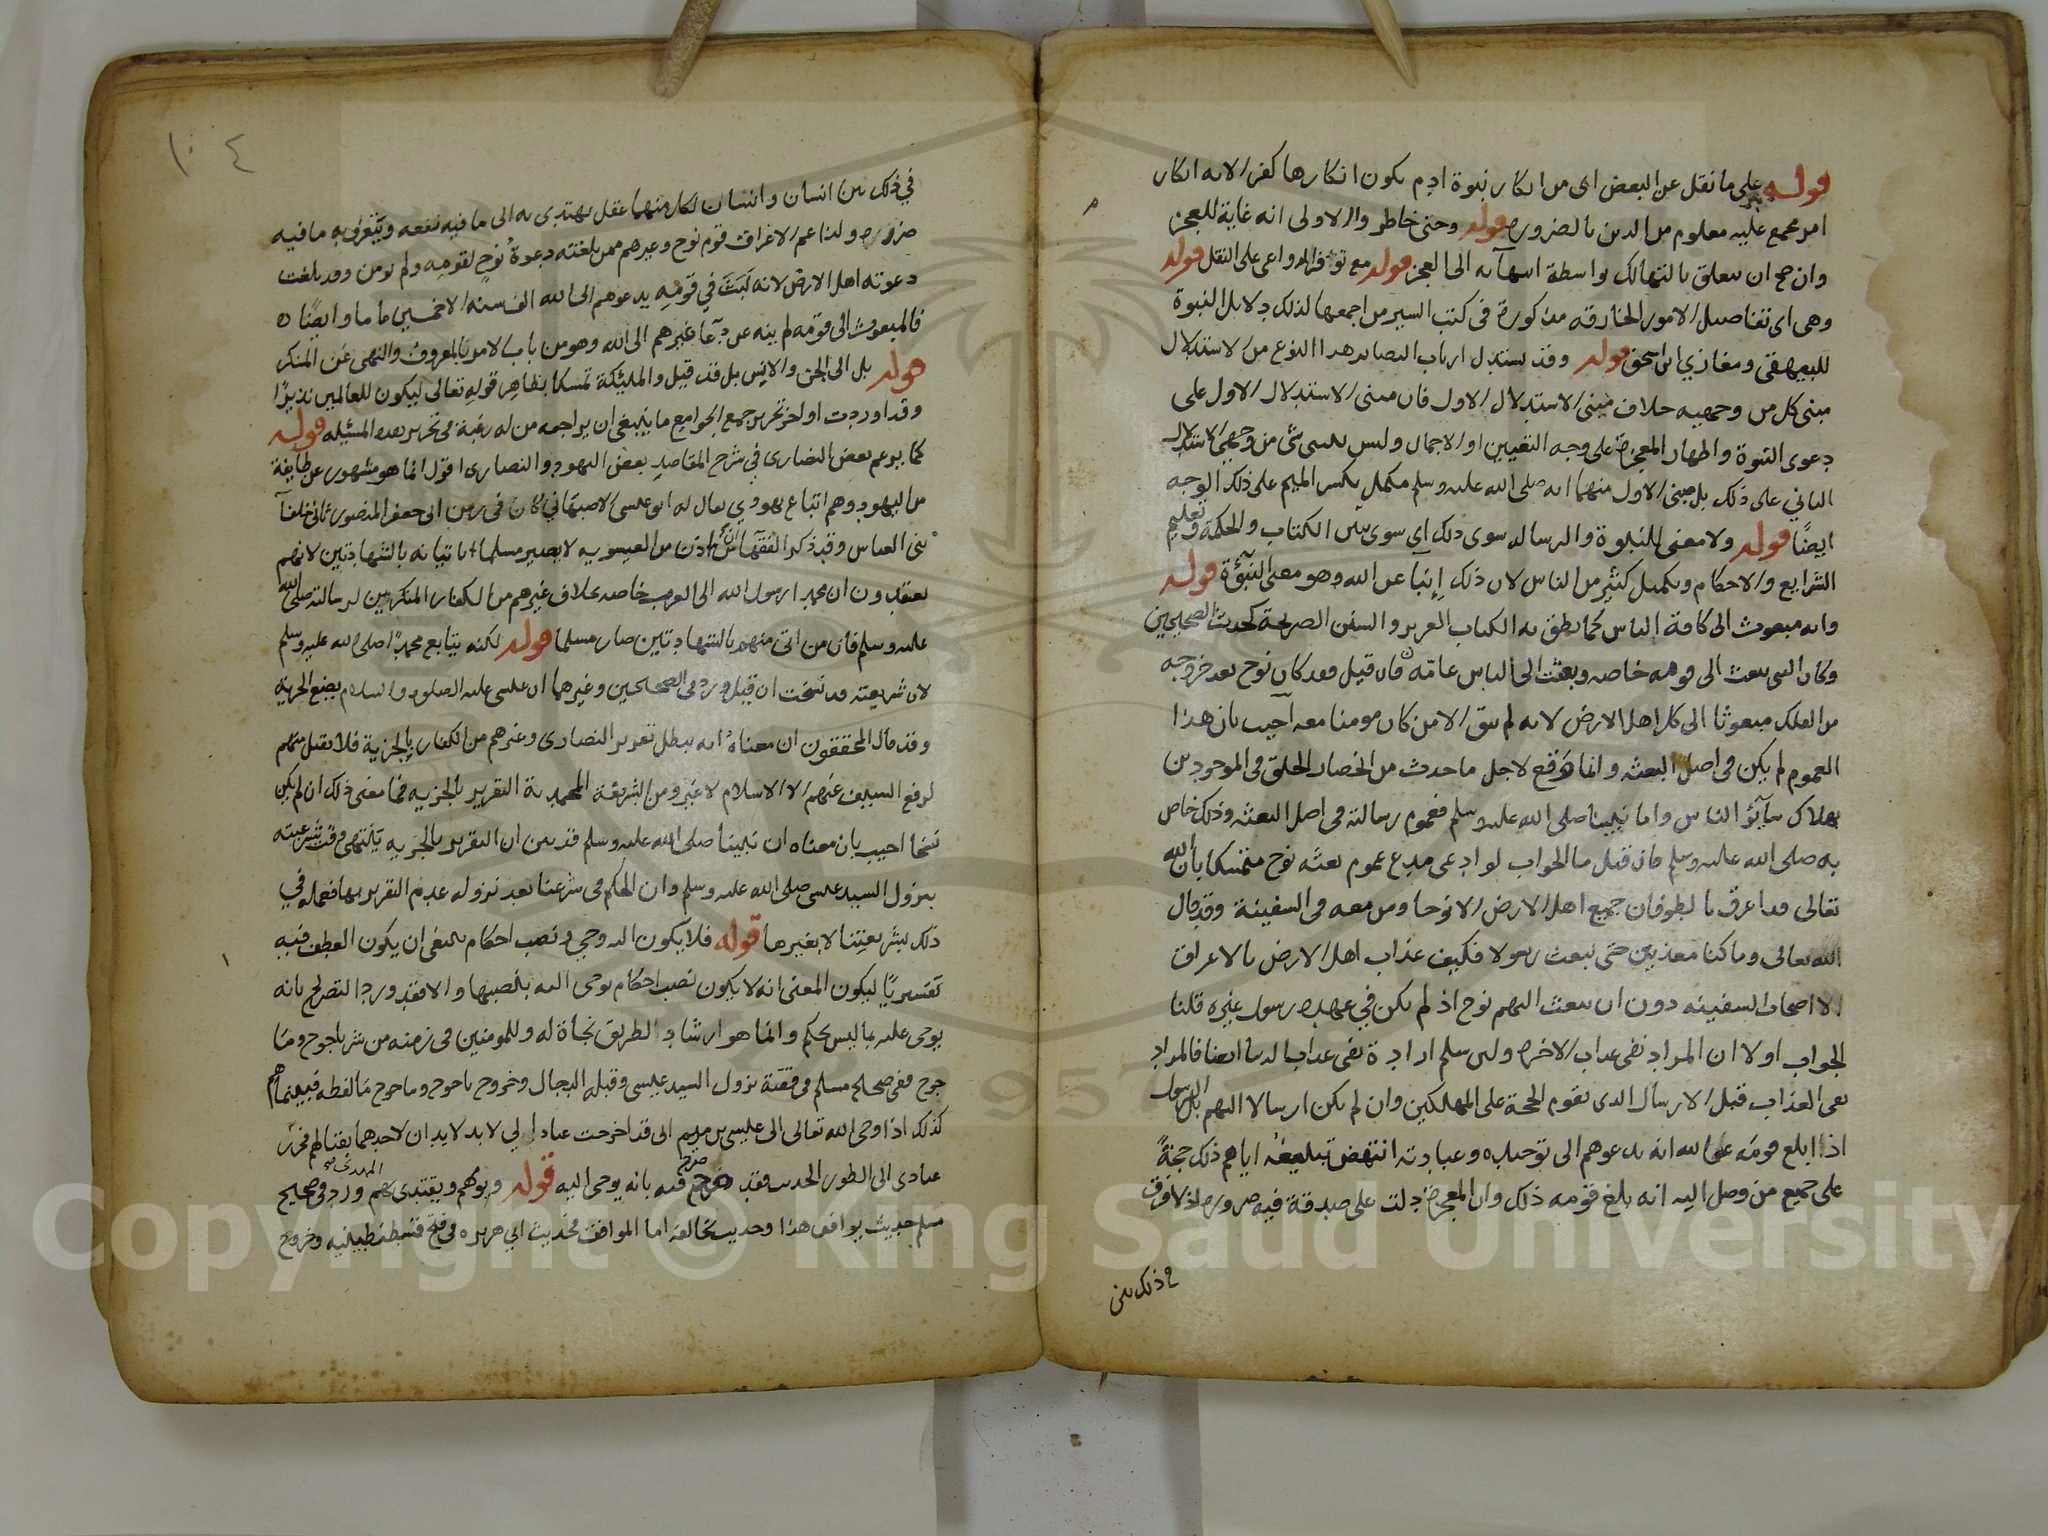 قوله على ما نقل عن البعض اى من انكار نبوة ادم يكون انكارها كفرا لانه انكار
امر مجمع عليه معلوم من الدين بالضرورة قوله وحتى خاطروا الاولى انه غاية للعجز
وان صح ان يتعلق بالتهالك بواسطة انتهآئه الى العجز قوله مع توفر الدواعى على النقل قوله
وهى اى تفاصيل الامور الخارقه مذكورة فى كتب السير من اجمعها لذلك دلايل النبوة
للبيهقى ومغازي ابن اسحق قوله وقد يستدل ارباب البصاير هذا النوع من الاستدلال
مبنى كل من وجهيه خلاف مبنى الاستدلال الاول فان مبنى الاستدلال الاول على
دعوى النبوة واظهار المعجزة على وجه التعيين او الاجمال وليس يبتنى شى من وجهي الاستدلال
الثاني على ذلك بل مبنى الاول منهما انه صلى الله عليه وسلم مكمل بكسر الميم على ذلك الوجه
ايضًا قوله ولا معنى للنبوة والرسالة سوى ذلك اي سوى تبيين الكتاب والحكمة وتعليم
الشرايع والاحكام وتكميل كثير من الناس لان ذلك إنبآ عن الله وهو معنى النبؤة قوله
وانه مبعوث الى كافة الناس كما نطق به الكتاب العزيز والسنن الصريحة كحديث الصحيحين
وكان النبى يبعث الى قومه خاصه وبعثت الى الناس عامة فان قيل فقد كان نوح بعد خروجه
من الفلك مبعوثا الى كل اهل الارض لانه لم يبق الا من كان مومنا معه اجيب بان هذا
العموم لم يكن فى اصل البعثه وانما وقع لاجل ما حدث من انحصار الخلق فى الموجودين
بهلاك سآئر الناس واما نبينا صلى الله عليه وسلم فعموم رسالته فى اصل البعثه وذلك خاص
به صلى الله عليه وسلم فان قيل ما الجواب لو ادعى مدع عموم بعثه نوح متمسكا بأن الله
تعالى قد اغرق بالطوفان جميع اهل الارض الا نوحا ومن معه فى السفينة وقد قال
الله تعالى وما كنا معذبين حتى نبعث رسولا فكيف عذاب اهل الارض بالاغراق
الا اصحاب السفينه دون ان يبعث اليهم نوح اذ لم يكن في عهده رسول غيره قلنا
الجواب اولا ان المراد نفى عذاب الاخرة ولئن سلم ارادة نفى عذاب الدنيا ايضا فالمراد
نفى العذاب قبل الارسال الذى تقوم الحجة على المهلكين وان لم يكن ارسالا اليهم بل الرسول
اذا ابلغ قومه عن الله انه يدعوهم الى توحيده وعبادته انتهض تبليغه اياهم ذلك حجةً
على جميع من وصل اليه انه بلغ قومه ذلك وان المعجزة دلت على صدقة فيه ضرورة اذ لا فرق
فى ذلك بين
١٠٤
في ذلك بين انسان وانسان لكل منهما عقل يهتدى به الى ما فيه نفعه ويتعرف به ما فيه
ضرره ولذا عم الاغراق قوم نوح وغيرهم ممن بلغته دعوةُ نوحٍ لقومه ولم يومن وقد بلغت
دعوته اهل الارض لانه لَبَثَ في قومِه يدعوهم الى الله الف سنه الا خمسين عاما وايضًا
فالمبعوث الى قومه لم ينه عن دعآ غيرهم الى الله وهو من باب الامر بالمعروف والنهى عن المنكر
قوله بل الى الجن والانس بل قد قيل والمليكة تمسكا بظاهر قوله تعالى ليكون للعالمين نذيرًا
وقد اوردت اواخر تحرير جمع الجوامع ما ينبغى ان يراجعه من له رغبة فى تحرير هذه المسئله قوله
كما يزعم بعض النصارى في شرح المقاصد بعض اليهود والنصارى اقول انما هو مشهور عن طايفة
من اليهود وهم اتباع يهودي يقال له ابو عيسى الاصبهاني كان فى زمن ابى جعفر المنصور ثانى خلفآ
بنى العباس وقد ذكر الفقهآ ان من العيسويه لا يصير مسلما باتيانه بالشهادتين لانهم
يعتقدون ان محمدا رسول الله الى العرب خاصه بخلاف غيرهم من الكفار المنكرين لرسالته صلى الله
عليه وسلم فان من اتى منهم بالشهادتين صار مسلما قوله لكنه يتابع محمدًا صلى الله عليه وسلم
لان شريعته قد نسخت ان قيل ورد فى الصحيحين وغيرهما ان عيسى عليه الصلوه والسلام يضع الجزية
وقد قال المحققون ان معناهُ انه يبطل تقرير النصارى وغيرهم من الكفار بالجزية فلا يقبل منهم
لرفع السيف عنهم الا الاسلام لا غير ومن الشريعة المحمدية التقرير بالجزيه فما معنى ذلك ان لم يكن
نسخا اجيب بان معناه ان نبينا صلى الله عليه وسلم قد بين ان التقرير بالجزيه ينتهى وقت شرعيته
بنزول السيد عيسى صلى الله عليه وسلم وان الحكم فى شرعنا بعد نزوله عدم التقرير بها فعمله في
ذلك بشريعتنا لا بغيرها قوله فلا يكون اليه وحي ونصب احكام ينبغى ان يكون العطف فيه
تفسيريًا ليكون المعنى انه لا يكون نصب احكام يوحى اليه بنصبها والا فقد ورد التصريح بانه
يوحى عليه بما ليس بحكم وانما هو ارشاد الطريق نجاة له وللمومنين فى زمنه من شر ياجوج وما
جوج ففى صحيح مسلم فى قصة نزول السيد عيسى وقتله الدجال وخروج ياجوج وماجوج ما لفظه فبينما هم
كذلك اذ اوحى الله تعالى الى عيسى بن مريم انى قد اخرجت عبادا لي لا بد لا يدان لاحد بقتالهم فحرز
عبادى الى الطور الحديث فقد صرح فيه بانه يوحى اليه قوله ويومهم ويقتدى بهم المهدى صح ورد فى صحيح
مسلم حديث يوافق هذا وحديث يخالفه اما الموافق فحديث ابي هريره فى فتح قسطنطينيه وخروج
Copyright © King Saud University
1957